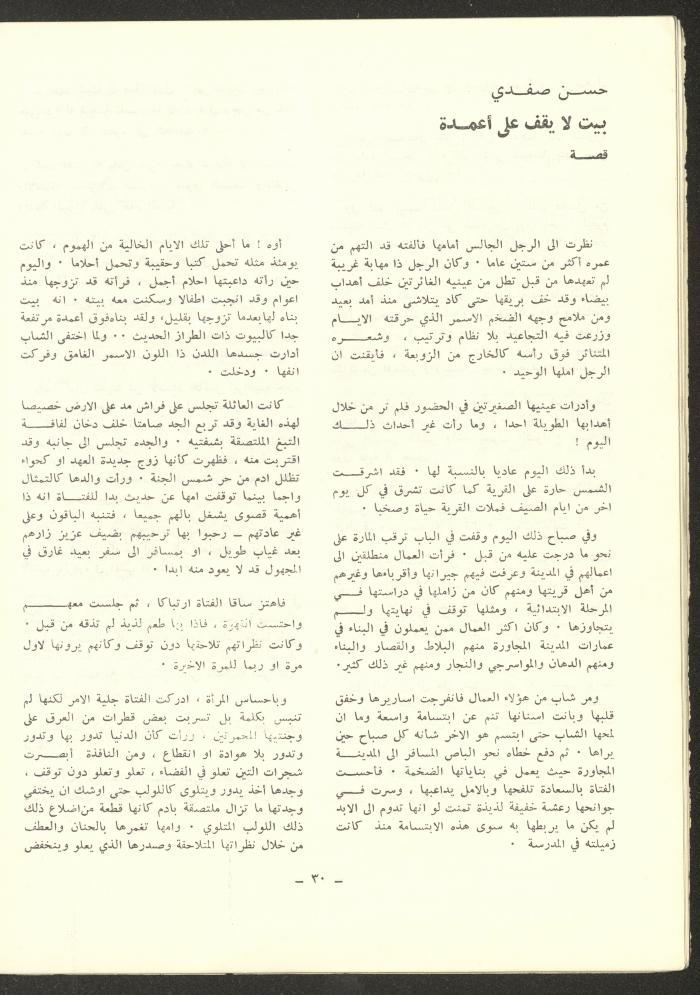 حســن صفــدي
بيت لا يقف على أعمــدة
قصــة
نظرت الى الرجل الجالس أمامها فألفته قد التهم من
عمره أكثر من ستين عاما ٠ وكان الرجل ذا مهابة غريبة
لم تعهدها من قبل تطل من عينيه الغائرتين خلف أهداب
بيضاء وقد خف بريقها حتى كاد يتلاشى منذ أمد بعيد
ومن ملامح وجهه الضخم الاسمر الذي حرقته الايــام
وزرعت فيه التجاعيد بلا نظام وترتيب ، وشعــــره
المتناثر فوق رأسه كالخارج من الزوبعة ، فأيقنت ان
الرجل املها الوحيد ٠
وأدرات عينيها الصغيرتين في الحضور فلم تر من خلال
أهدابها الطويلة احدا ، وما رأت غير أحداث ذلــــك
اليوم !
بدأ ذلك اليوم عاديا بالنسبة لها ٠ فقد اشرقــــت
الشمس حارة على القرية كما كانت تشرق في كل يوم
اخر من ايام الصيف فملات القرية حياة وصخبا ٠
وفي صباح ذلك اليوم وقفت في الباب ترقب المارة على
نحو ما درجت عليه من قبل ٠ فرأت العمال منطلقين الى
اعمالهم في المدينة وعرفت فيهم جيرانها وأقرباءها وغيرهم
من أهل قريتها ومنهم كان من زاملها في دراستها فـــي
المرحلة الابتدائية ، ومثلها توقف في نهايتها ولــــم
يتجاوزها ٠ وكان اكثر العمال ممن يعملون في البناء في
عمارات المدينة المجاورة منهم البلاط والقصار والبناء
ومنهم الدهان والمواسرجي والنجار ومنهم غير ذلك كثير٠
ومر شاب من هؤلاء العمال فانفرجت اساريرها وخفق
قلبها وبانت اسنانها تنم عن ابتسامة واسعة وما ان
لمحها الشاب حتى ابتسم هو الاخر شأنه كل صباح حين
يراها ٠ ثم دفع خطاه نحو الباص المسافر الى المدينــة
المجاورة حيث يعمل في بناياتها الضخمة ٠ فأحســت
الفتاة بالسعادة تلفحها وبالامل يداعبها ، وسرت فــي
جوانحها رعشة خفيفة لذيذة تمنت لو انها تدوم الى الابد
لم يكن ما يربطها به سوى هذه الابتسامة منذ كانت
زميلته في المدرسة ٠
أوه ! ما أحلى تلك الايام الخالية من الهموم ، كانت
يومئذ مثله تحمل كتبا وحقيبة وتحمل أحلاما ٠ واليوم
حين رأته داعبتها احلام أجمل ، فرأته قد تزوجها منذ
اعوام وقد انجبت اطفالا وسكنت معه بيته ٠ انه بيت
بناه لهابعدما تزوجها بقليل، ولقد بناهفوق أعمدة مرتفعة
جدا كالبيوت ذات الطراز الحديث ٠٠ ولما اختفى الشاب
أدارت جسدها اللدن ذا اللون الاسمر الغامق وفركت
انفها ٠ ودخلت ٠
كانت العائلة تجلس على فراش مد على الارض خصيصا
لهذه الغاية وقد تربع الجد صامتا خلف دخان لفافــــة
التبغ الملتصقة بشفتيه ٠ والجده تجلس الى جانبه وقد
اقتربت منه ، فظهرت كأنها زوج جديدة العهد او كحواء
تظلل ادم من حر شمس الجنة ٠ ورأت والدها كالتمثال
واجما بينما توقفت امها عن حديث بدا للفتــاة انه ذا
أهمية قصوى يشغل بالهم جميعا ، فتنبه الباقون وعلى
غير عادتهم ــ رحبوا بها ترحيبهم بضيف عزيز زارهم
بعد غياب طويل ، او بمسافر الى سفر بعيد غارق في
المجهول قد لا يعود منه ابدا ٠
فاهتز ساقا الفتاة ارتباكا ، ثم جلست معهـــــم
واحتست القهوة ، فاذا بها طعم لذيذ لم تذقه من قبل ٠
وكانت نظراتهم تلاحقها دون توقف وكأنهم يرونها لاول
مرة او ربما للمرة الاخيرة ٠
وباحساس المرأة ، ادركت الفتاة جلية الامر لكنها لم
تنبس بكلمة بل تسربت بعض قطرات من العرق على
وجنتيها المحمرتين ، ورأت كأن الدنيا تدور بها وتدور
وتدور بلا هوادة او انقطاع ، ومن النافذة أبصــرت
شجرات التين تعلو في الفضاء ، تعلو وتعلو دون توقف ،
وجدها أخذ يدور ويتلوى كاللولب حتى اوشك ان يختفي
وجدتها ما تزال ملتصقة بادم كانها قطعة مناضلاع ذلك
ذلك اللولب المتلوي ٠ وامها تغمرها بالحنان والعطف
من خلال نظراتها المتلاحقة وصدرها الذي يعلو وينخفض
ــ ٣٠ ــ